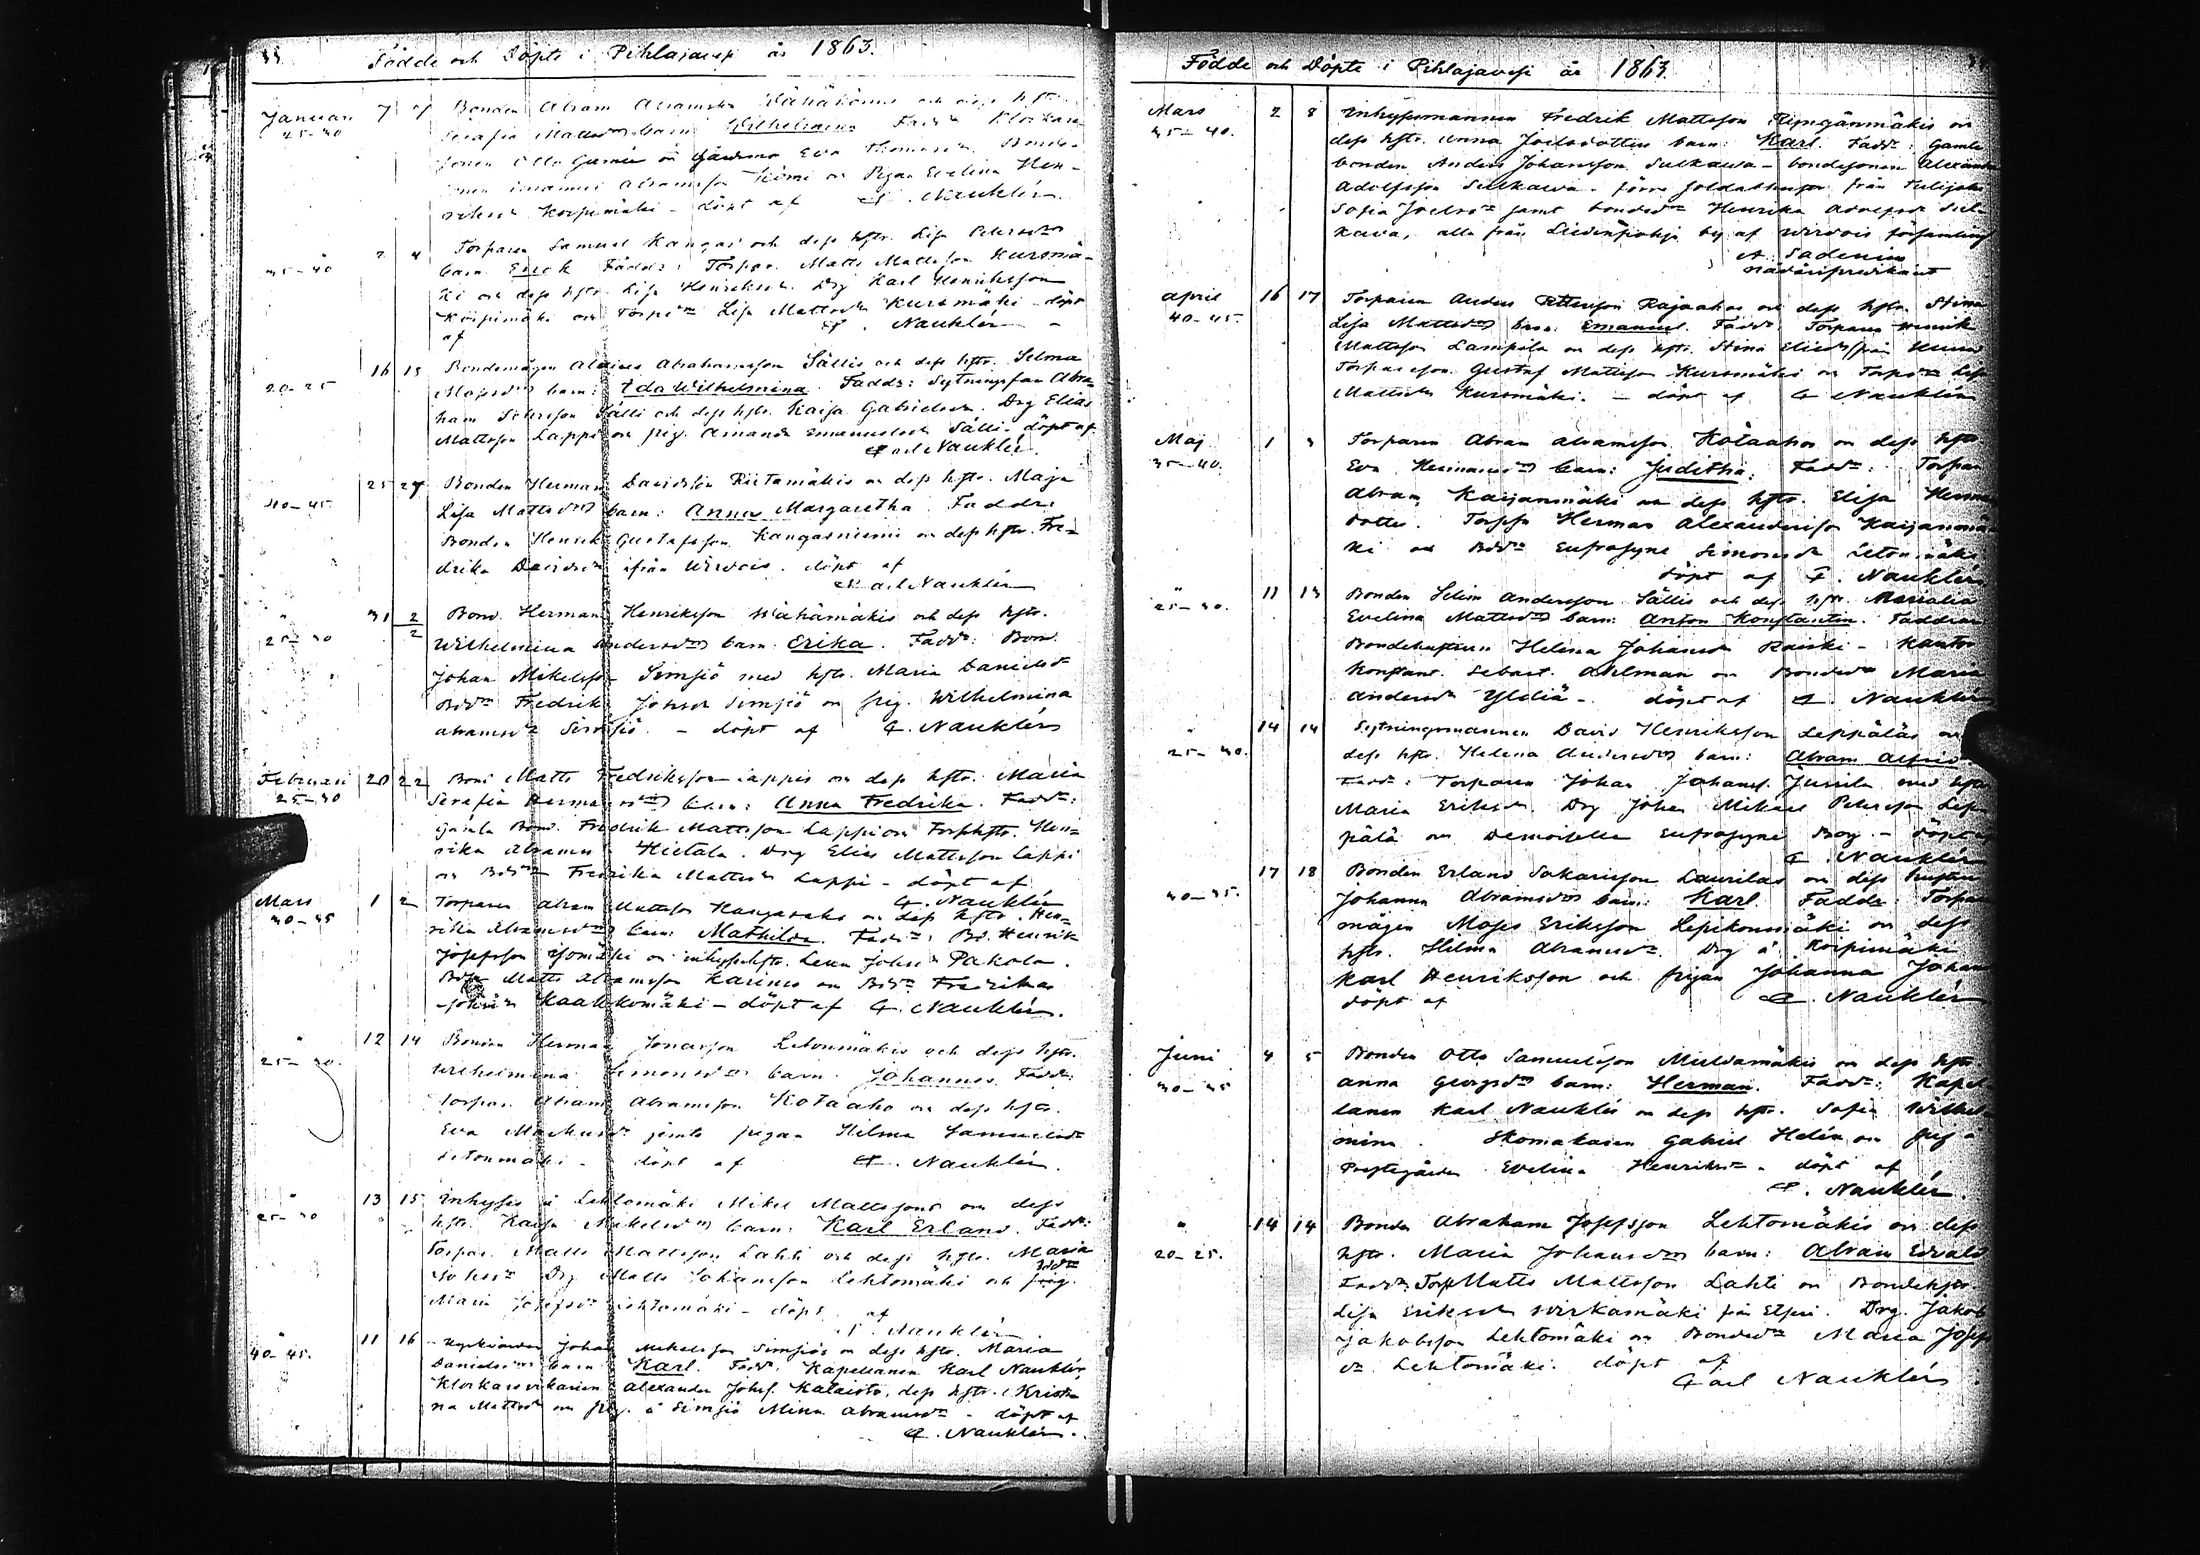 33.
Födde och Döpte i Pihlajavesi år 1863.
Januari 7 Bonden Abram Abramsson och dess hstr.
25-30 Serafia Mattsdrs barn: Wilhelmina Fadd: Klockare
sonen Otto och Eva Thomasdr. Bonde-
sonen Emanuel Abramsson Niemi och Pigan Evelina Hen-
riksdr Korpimäki - döpt af C. Nauklér.
" 2 4 Torparen Samuel Kangas och dess hstr. Lisa Petersdrs
35-40 barn Erick Faddr: Torpar. Matts Mattsson Kursmä-
ki och dess hstr. Lisa Henriksdr. Drg Karl Henriksson
Korpimäki och Torpdr Lisa Mattsdr Kursmäki - döpt
af C. Nauklér -
16 18 Bondemågen Abrahamsson Sällis och dess hstr. Selma
20-25 barn: Ida Wilhelmina. Faddr: Sytningsfar Abra-
ham Sälli och dess hstr. Kaisa Gabrielsdr. Drg Elias
Mattsson Lappi och pig. Amanda Emanuelsdr Sälli. döpt af
Carl Nauklér.
25 27 Bonden Herman Davidsson Riitamäkis och dess hstr. Maja
40-45 Lisa Mattsdrs barn: Anna Margaretha. Faddr:
Bonden Henrik Gustafsson Kangasniemi och dess hstr. Fre-
drika Davidsdr ifrån Wirdois. döpt af
Carl Nauklér
" 31 2/2 Bond. Herman Henriksson Wähämäkis och dess hstr.
25-30 Wilhelmina Andersdrs barn: Erika. Fadd: Bond.
Johan Mikelsson Simsiö med hstr. Maria Danielsdr
Bddr Fredrika Simsiö och pig. Wilhelmina
Abramsdr Simsiö. - döpt af C. Nauklér
Februari 20 22 Bond Matts Fredriksson Lappis och dess hstr. Maria
25-30 Serafia Hermansdrs barn: Anna Fredrika. Fadd:
gamla Bond. Fredrik Mattsson Lappi och Torphstr. Hen-
rika Abramsdr Hietala. Drg Elias Mattsson Lappi
och Bddr Fredrika Mattsdr Lappi - döpt af
C. Nauklér
Mars 1 2 Torparen Abram Mattsson Kangasaho och dess hstr. Hen-
30-35 rika Abramsdrs barn: Mathilda. Fadd: Bd. Henrik
Josefsson och inhyseshstr. Lena Johsdr Pakola.
Matts Abramsson och Bddr Fredrika
Kaakkomäki - döpt af C. Nauklér.
" 12 14 Bonden Herman Jonasson Letonmäkis och dess hstr.
25-30. Wilhelmina Simonsdrs barn Johannes. Fadd:
Torpar. Abram Abramsson Kotaaho och dess hstr.
Eva jemte pigan Hilma Samuelsdr
Letonmäki - döpt af C. Nauklér.
" 13 15 Inhyses å Lehtomäki Mikel Mattssons och dess
25-30 hstr. Kaisa Mikelsdrs barn: Karl Erland. Fadd:
Torpar. Matts Mattsson Lahti och dess hstr. Maria
Johsdr Drg Matts Johansson Lehtomäki och
Maria Josefsdr Lehtomäki - döpt af
C. Nauklér
" 11 16 Johan Mikelsson Simsiös och dess hstr. Maria
40-45. Danielsdrs barn: Karl. Fadd: Kapellanen Karl Nauklér,
Klockarevikarien Alexander Johs. Kalaisto, dess hstr. Kristi-
na Mattsdr och pig. å Simsiö Miina Abramsdr - döpt af
C. Nauklér.
Födde och Döpte i Pihlajavesi år 1863.
Mars 2 8 Inhysesmannen Fredrik Mattsson Ripsgänmäkis och
35-40. dess hstr. Anna Joelsdotters barn: Karl. Fadd: Gamle
bonden Anders Johansson Sulkawa - bondesonen Alexander
Adolfsson Sulkawa - förre från
Sofia Joelsdr samt bondedr Henrika Adolfsdr Sul-
kava, alla från Liedenpohja by af Wirdois församling
A. Sadenius
nådårspredikant
April 16 17 Torparen Anders Pettersson Rajaahos och dess hstr. Stina
40-45. Lisa Mattsdrs barn: Emanuel. Fadd: Torparen Henrik
Mattsson Lampila och dess hstr. Stina Eliedr från
Torparesson. Gustaf Mattsson Kursmäki och Torpdr Lisa
Mattsdr Kursmäki. - döpt af C. Nauklér
Maj 1 3 Torparen Abram Abramsson Kotaahos och dess hstr.
35-40. Eva Hermansdrs barn: Juditha. Fadd: Torpar
Abram Karjanmäki och dess hstr. Elisa Herman
dotter. Torpss Herman Alexandersson Karjanmä-
ki och Bddr Eufrosyne Simonsdr Letonmäki
döpt af C. Nauklér
" 11 13 Bonden Selim Andersson Sällis och dess hstr.
25-30. Evelina Mattsdrs barn: Anton Konstantin. Faddrar
Bondehustrun Helena Johansdr Raiski - Kantor
Konstant. Sebast. Ahlman och Bondedr Maria
Andersdr Yldiä - döpt af C. Nauklér
" 14 14 Sytningsmannen David Henriksson Leppäläs och
25-30. dess hstr. Helena Andersdrs barn: Abram Alfrid
Fadd: Torparen Johan Johanss. Jussila med hstr
Maria Eriksdr. Drg Johan Mikael Petersson Lep-
pälä och Demoiselle Eufrosyne Borg - döpt af
C. Nauklér
17 18 Bonden Erland Sakarisson Laurilas och dess hustru
30-35. Johanna Abramsdrs barn: Karl. Faddr: Torpar
mågen Moses Eriksson Lepikonmäki och dess
hstr. Hilma Abramsdr. Drg å Korpimäki
Karl Henriksson och pigan Johanna Johans
döpt af C. Nauklér
Juni 4 5 Bonden Otto Samuelsson Multamäkis och dess hstr.
30-35 Anna Georgsdrs barn: Herman. Fadd: Kapel-
lanen Karl Nauklér och dess hstr. Sofia Wilhel-
mina. Skomakaren Gabriel Helén och pig. å
Prestgården Evelina Henriksdr - döpt af
C. Nauklér.
" 14 14 Bonden Abraham Josefsson Lehtomäkis och dess
20-25. hstr. Maria Johansdrs barn: Abram Edvald
Fadd: Torp Matts Mattsson Lahti och Bondehstr.
Lisa Eriksdr Wirkamäki från Etseri. Drg. Jakob
Jakobsson Lehtomäki och Bondedr Maria Josef
dr Lehtomäki. döpt af
Carl Nauklér.